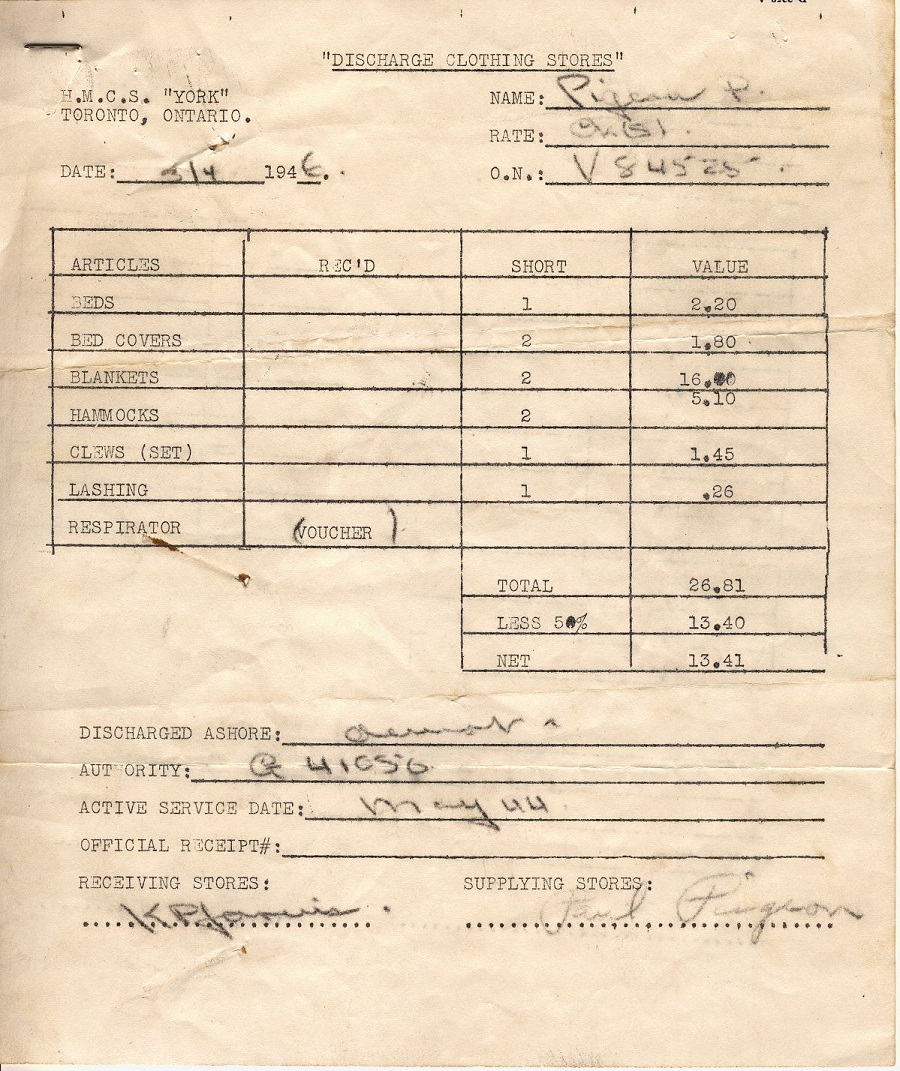 "DISCHARGE CLOTHING STORES"
H.M.C.S. "YORK"
TORONTO, ONTARIO.
NAME: Pigeon P.
RATE:
DATE: 3/4 1946.
O.N.: V 84525
ARTICLES REC'D SHORT VALUE
BEDS 1 2.20
BED COVERS 2 1.80
BLANKETS 2 16.00
HAMMOCKS 2 5.10
CLEWS (SET) 1 1.45
LASHING 1 .26
RESPIRATOR (VOUCHER)
TOTAL 26.81
LESS 50% 13.40
NET 13.41
DISCHARGED ASHORE:
AUTHORITY: G 41056
ACTIVE SERVICE DATE: May 44
OFFICIAL RECEIPT#:
RECEIVING STORES: SUPPLYING STORES:
K P Jarvis Paul Pigeon